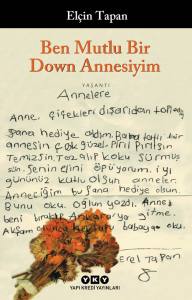 Elçin Tapan
Ben Mutlu Bir
Down Annesiyim
YAŞANTI
Annelere
Anne, çiçekleri dışarıdan topladım
Sana hediye aldım. Baba tatlı bir
annesin çok güzel. Pırıl Pırılsın
Temizsin. Toz alıp koku sürmüş
sün. Senin elini öpüyorum. iyi
gününüz kutlu olsun anneler.
Anneciğim bu sana hediye olsun.
unu oku. Oğlun yazdı. Annes
beni bırakıp Ankara'ya gitme.
Akşam olunca babaya oku.
Erel Tapan
YKY
YAPI KREDİ YAYINLARI